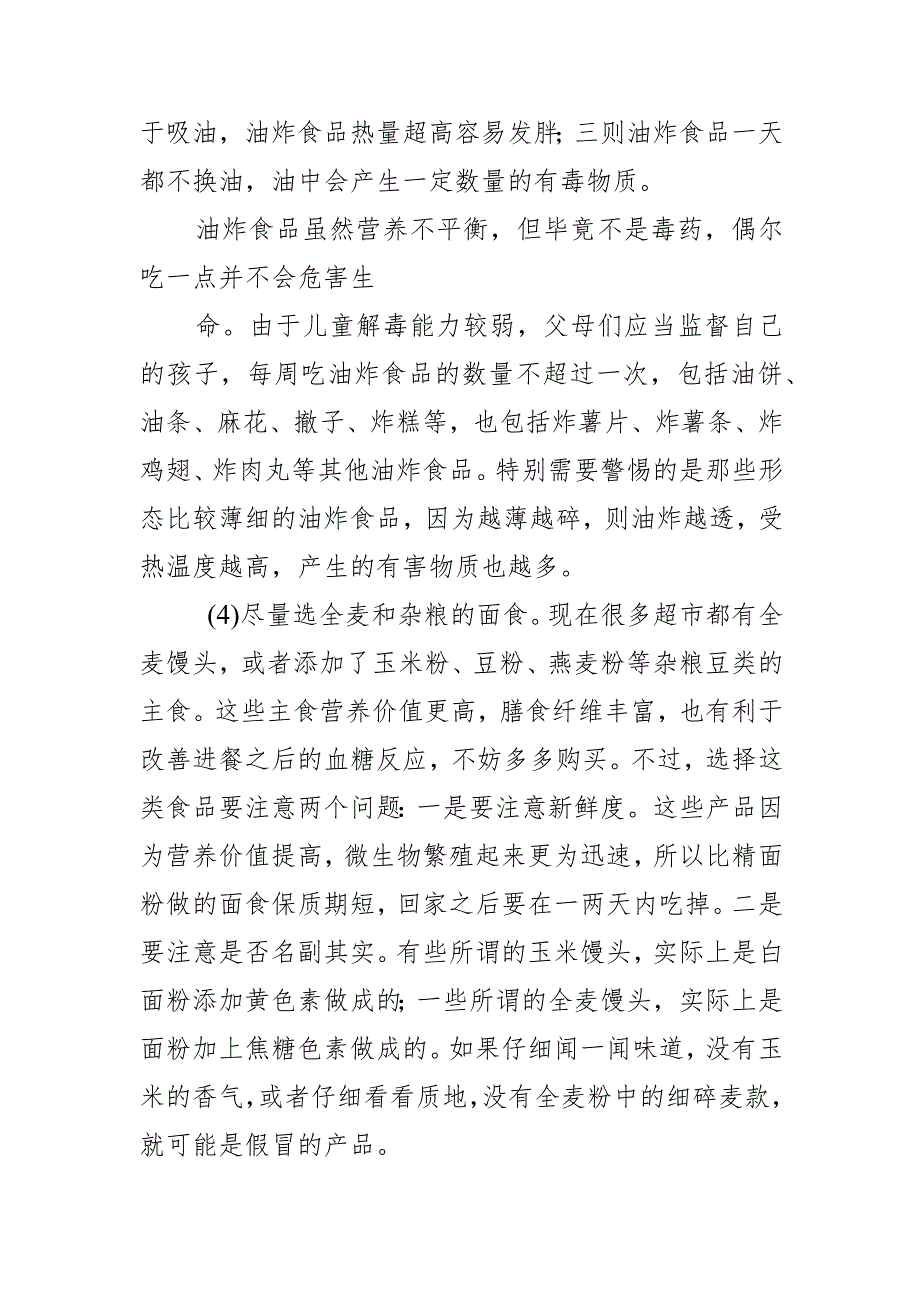 于吸油，油炸食品热量超高容易发胖；三则油炸食品一天
都不换油，油中会产生一定数量的有毒物质。
油炸食品虽然营养不平衡，但毕竟不是毒药，偶尔
吃一点并不会危害生
命。由于儿童解毒能力较弱，父母们应当监督自己
的孩子，每周吃油炸食品的数量不超过一次，包括油饼、
油条、麻花、撤子、炸糕等，也包括炸薯片、炸薯条、炸
鸡翅、炸肉丸等其他油炸食品。特别需要警惕的是那些形
态比较薄细的油炸食品，因为越薄越碎，则油炸越透，受
热温度越高，产生的有害物质也越多。
(4)尽量选全麦和杂粮的面食。现在很多超市都有全
麦馒头，或者添加了玉米粉、豆粉、燕麦粉等杂粮豆类的
主食。这些主食营养价值更高，膳食纤维丰富，也有利于
改善进餐之后的血糖反应，不妨多多购买。不过，选择这
类食品要注意两个问题：一是要注意新鲜度。这些产品因
为营养价值提高，微生物繁殖起来更为迅速，所以比精面
粉做的面食保质期短，回家之后要在一两天内吃掉。二是
要注意是否名副其实。有些所谓的玉米馒头，实际上是白
面粉添加黄色素做成的；一些所谓的全麦馒头，实际上是
面粉加上焦糖色素做成的。如果仔细闻一闻味道，没有玉
米的香气，或者仔细看看质地，没有全麦粉中的细碎麦款，
就可能是假冒的产品。